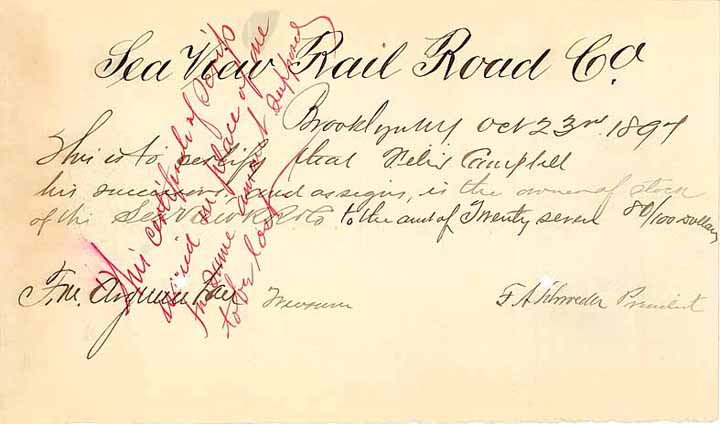 Sea View Rail Road Co.
Brooklyn NY Oct 23rd. 1894
This is to certify that Felix Campbell
his successors, and assigns, is the owner of stock
of the Sea View R R Co to the amt of Twenty seven 80/100 Dollars
F. M. Treasurer
F A Schroeder President
This certificate of scrip
issued in place of one
for same amount supposed
to be lost